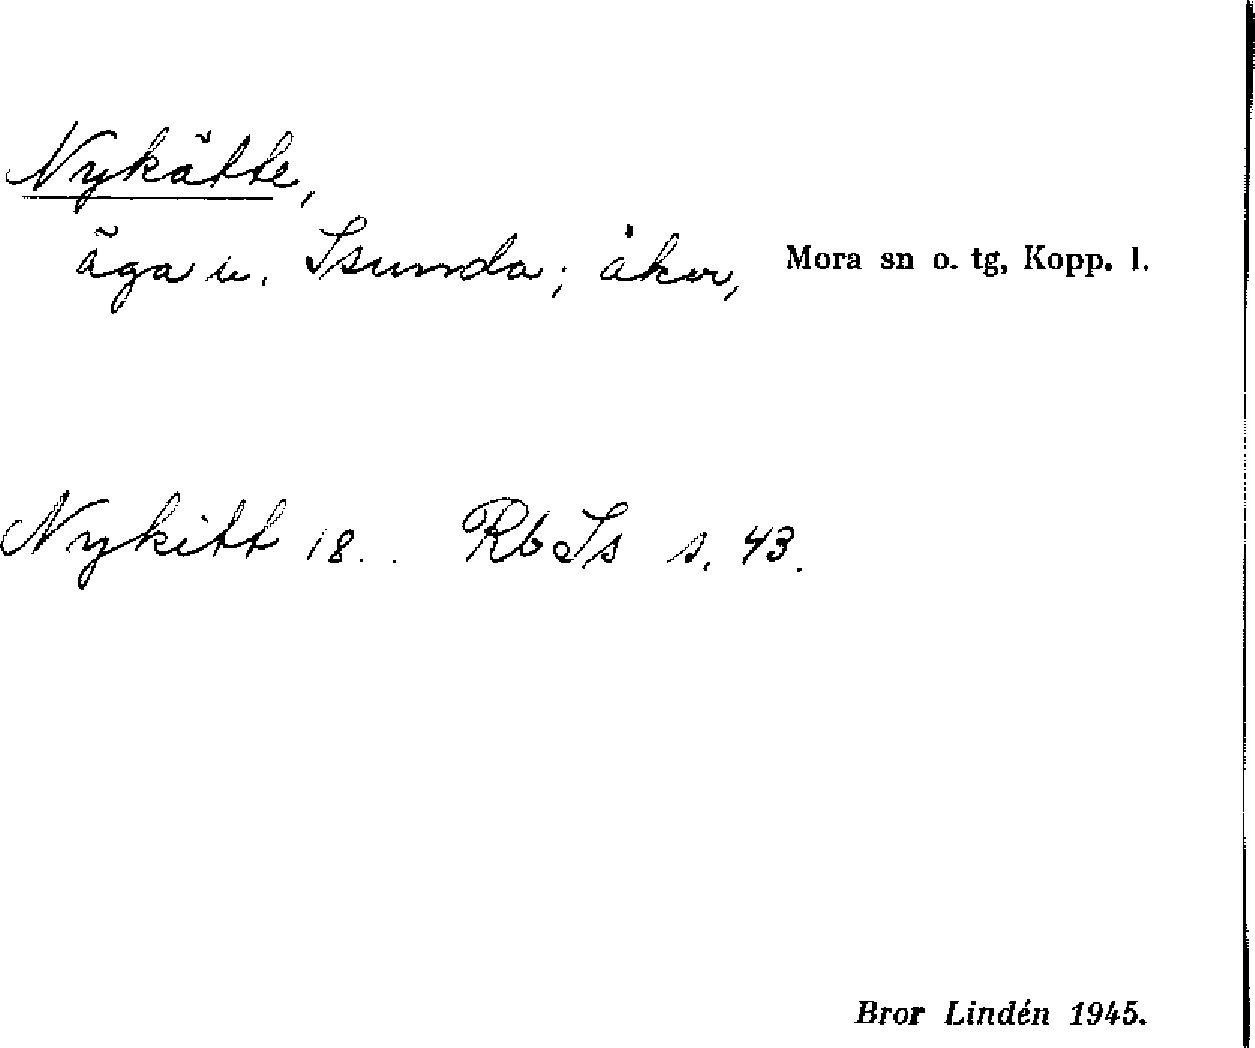 Nykätte,
äga u. Isunda; åker, Mora sn o. tg, Kopp. l.
Nykitt 18.. Rb Is s. 43.
Bror Lindén 1945.